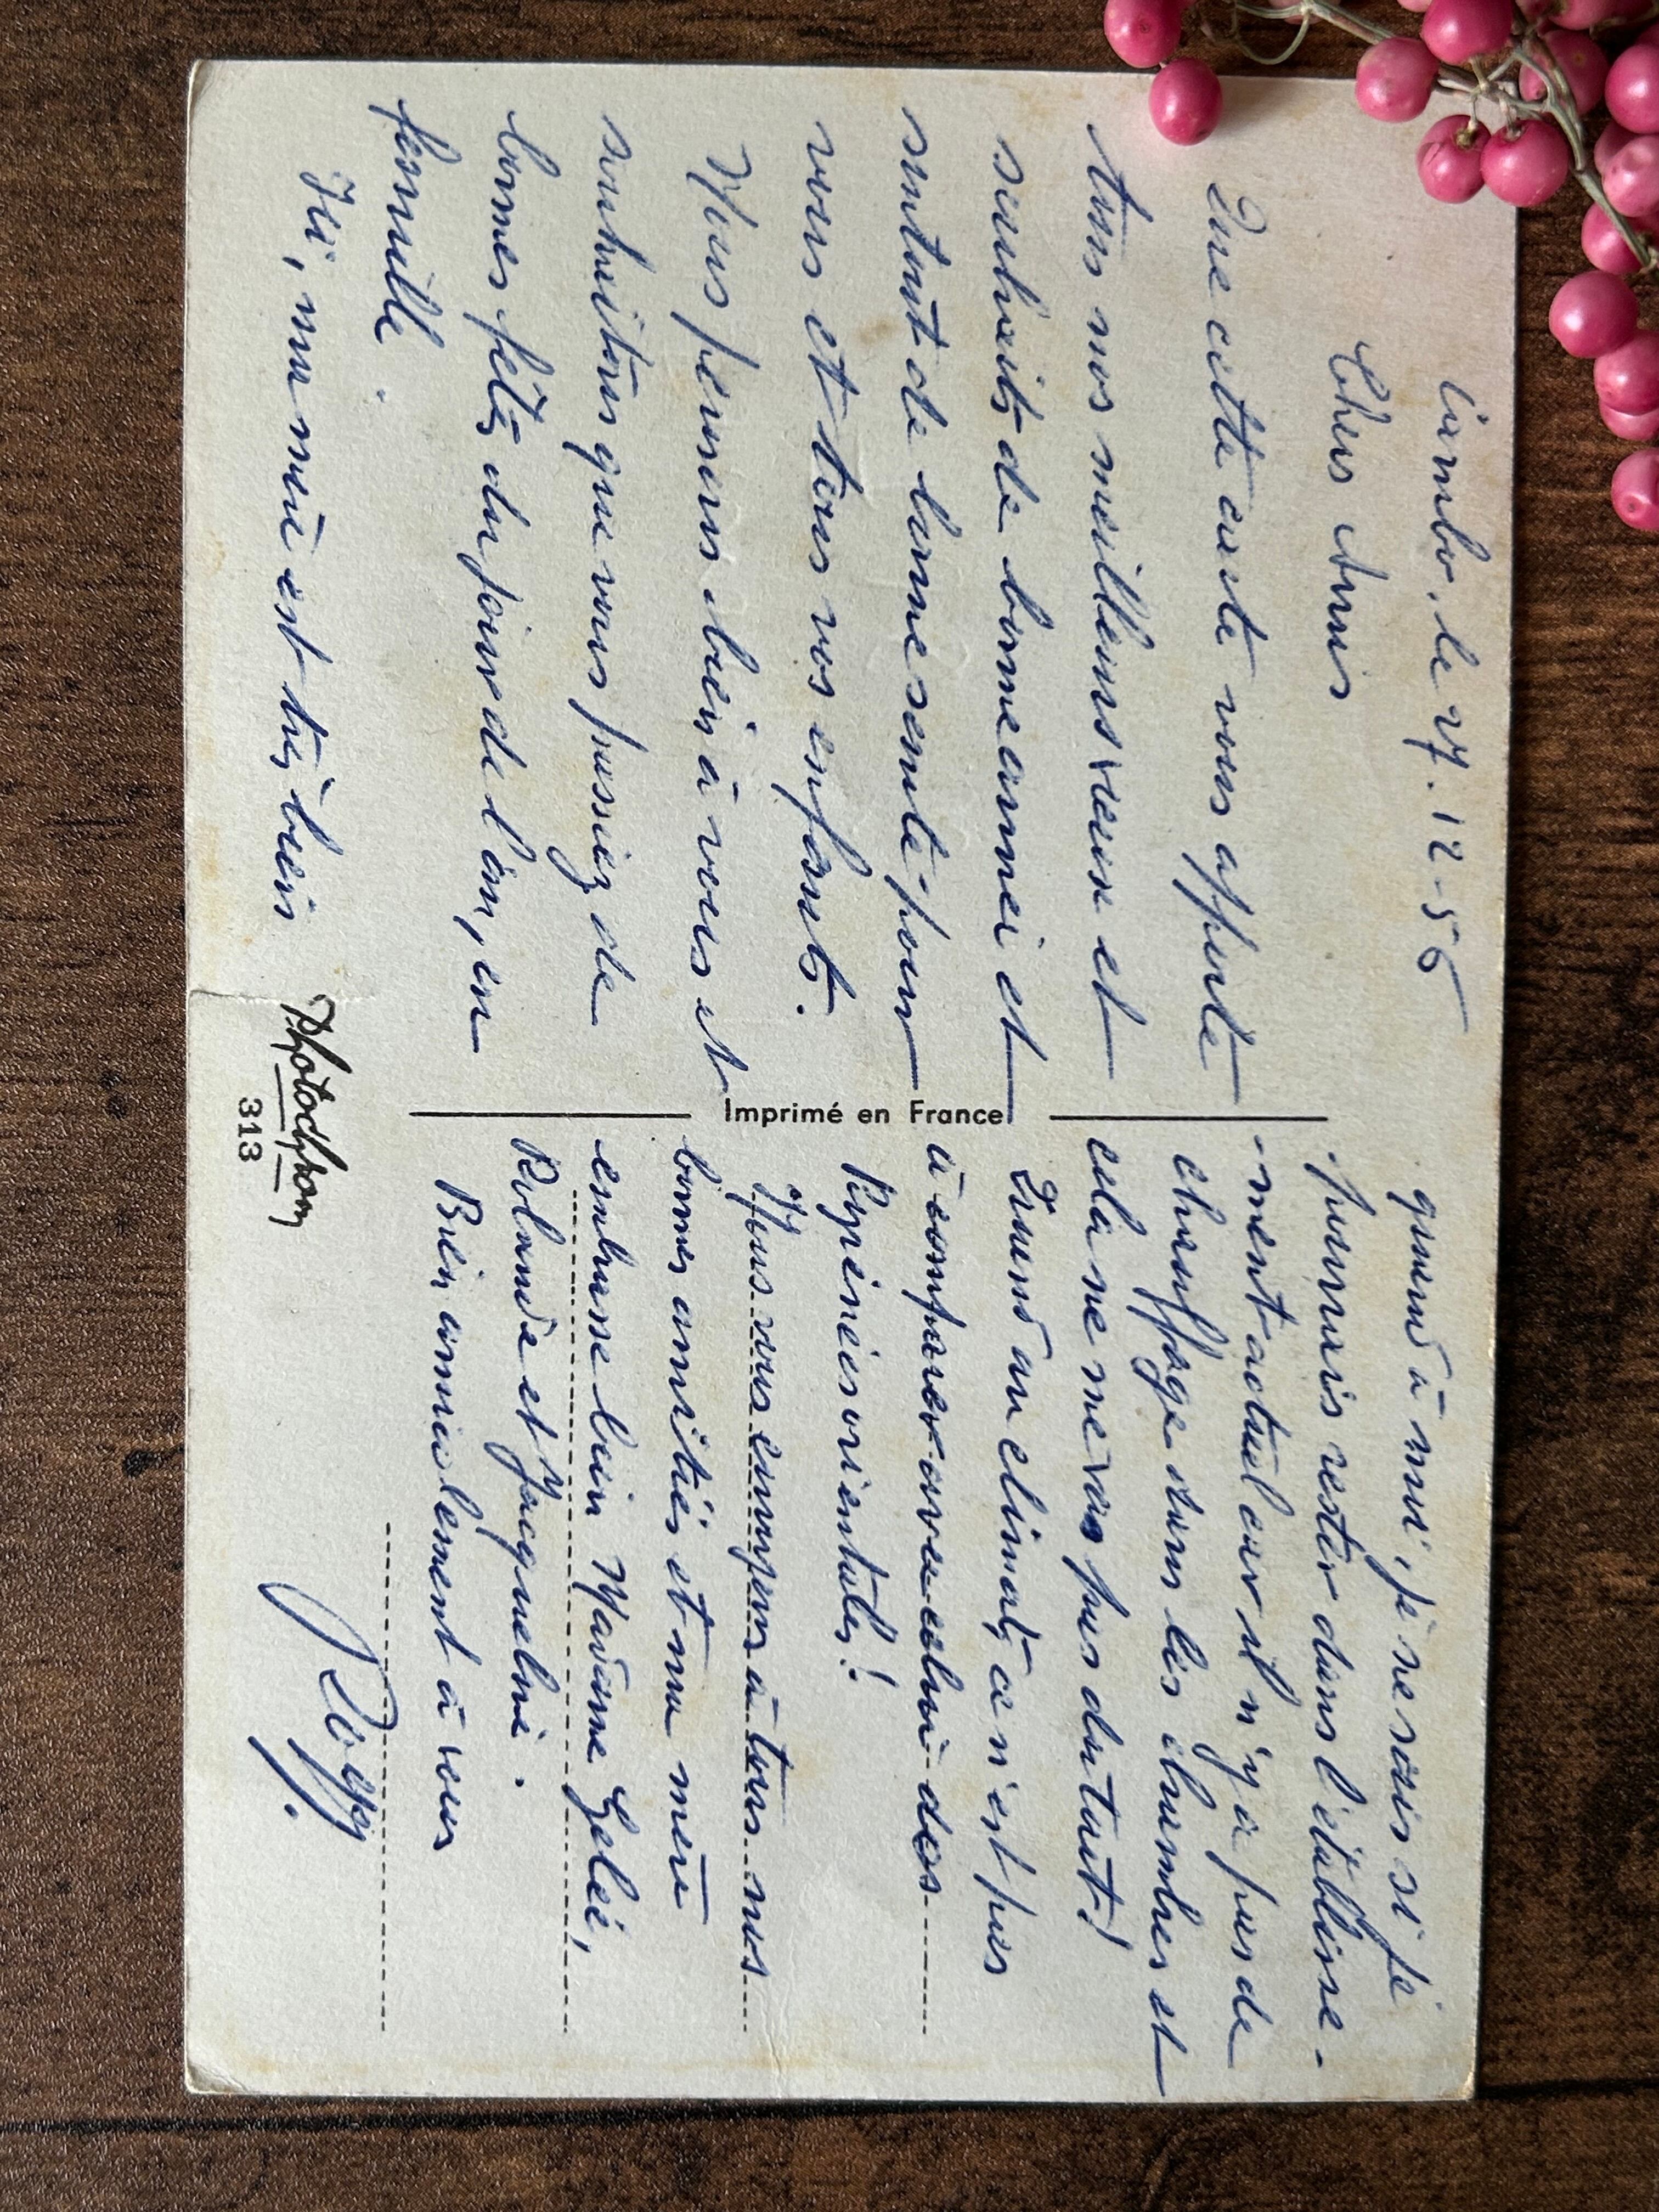 Cambo, le 27.12-56
Chers Amis
Que cette carte vous apporte
tous nos meilleurs vœux et
souhaits de bonne année et
surtout de bonne santé pour
vous et tous vos enfants.
Nous pensons bien à vous et
souhaitons que vous passiez de
bonnes fêtes du jour de l'an, en
famille.
Ici, ma mère est très bien
quand à moi, je ne sais si je
pourrais rester dans l'établisse-
-ment actuel car il n'y a pas de
chauffage dans les chambres et
cela ne me va pas du tout!
Quand au climat, ce n'est pas
à comparer avec celui des
Pyrénées orientales!
Nous vous envoyons à tous nos
bonnes amitiés et ma mère
embrasse bien Madame Gelée,
Rolande et Jacqueline.
Bien amicalement à vous
Imprimé en France
Photochrom
313